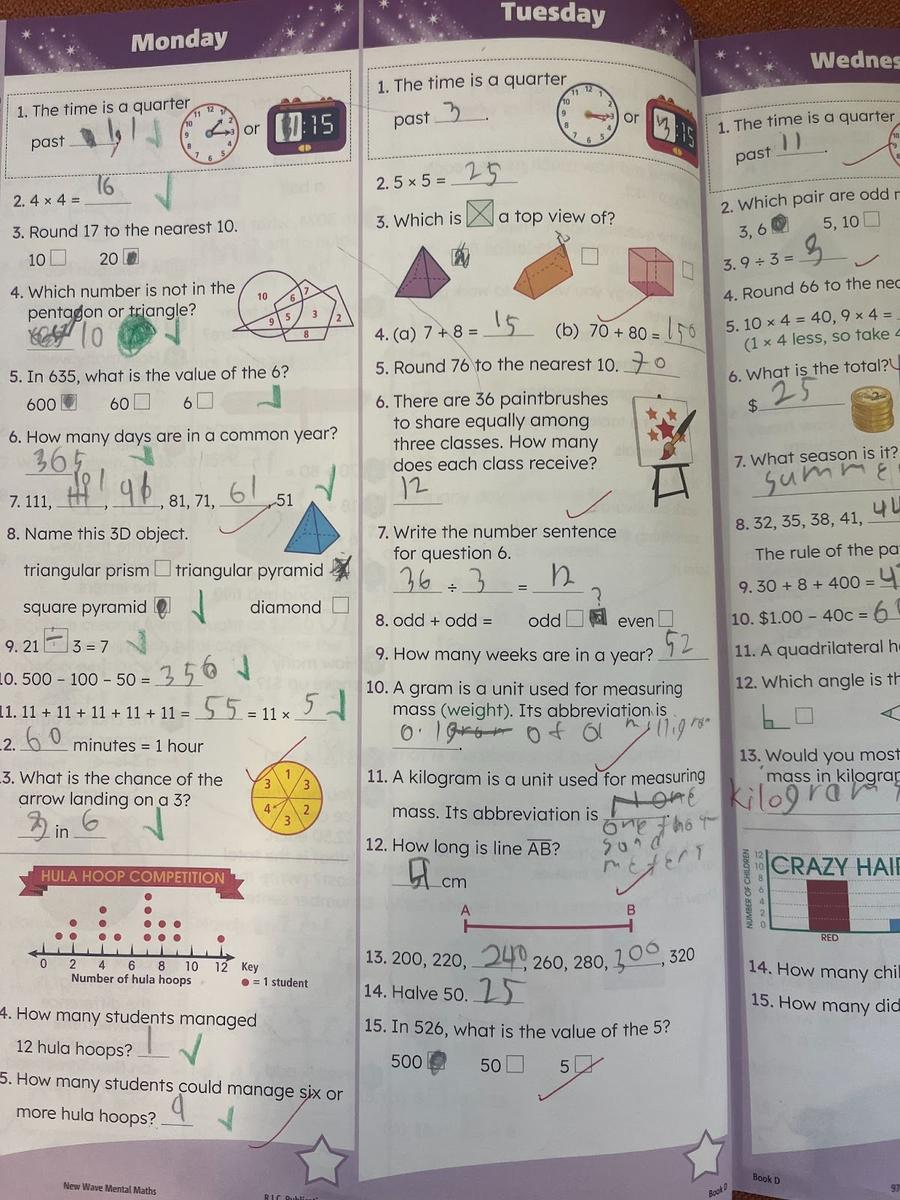 Monday
1. The time is a quarter
past 1 or 1:15
2. 4 × 4 = 16
3. Round 17 to the nearest 10.
10 20
4. Which number is not in the
pentagon or triangle?
10
10 7 6 9 5 3 2 8
5. In 635, what is the value of the 6?
600 60 6
6. How many days are in a common year?
365
7. 111, 101, 91, 81, 71, 61, 51
8. Name this 3D object.
triangular prism triangular pyramid
square pyramid diamond
9. 21 ÷ 3 = 7
10. 500 – 100 – 50 = 350
11. 11 + 11 + 11 + 11 + 11 = 55 = 11 × 5
2. 60 minutes = 1 hour
3. What is the chance of the
arrow landing on a 3?
3 in 6
1 3 2 3 4 3
HULA HOOP COMPETITION
0 2 4 6 8 10 12 Key
Number of hula hoops = 1 student
4. How many students managed
12 hula hoops? 1
5. How many students could manage six or
more hula hoops? 9
New Wave Mental Maths
Tuesday
1. The time is a quarter
past 3. or 3:15
2. 5 × 5 = 25
3. Which is a top view of?
4. (a) 7 + 8 = 15 (b) 70 + 80 = 150
5. Round 76 to the nearest 10. 70
6. There are 36 paintbrushes
to share equally among
three classes. How many
does each class receive?
12
7. Write the number sentence
for question 6.
36 ÷ 3 = 12
?
8. odd + odd = odd even
9. How many weeks are in a year? 52
10. A gram is a unit used for measuring
mass (weight). Its abbreviation is
0.1 gram of a milligram
11. A kilogram is a unit used for measuring
mass. Its abbreviation is None
one thou
sand
meters
12. How long is line AB?
cm
A B
13. 200, 220, 240, 260, 280, 300, 320
14. Halve 50. 25
15. In 526, what is the value of the 5?
500 50 5
Book D
Wednes
1. The time is a quarter
past 11.
2. Which pair are odd
3, 6 5, 10
3. 9 ÷ 3 = 3
4. Round 66 to the nea
5. 10 × 4 = 40, 9 × 4 =
(1 × 4 less, so take 4
6. What is the total?
$ 25
7. What season is it?
summe
8. 32, 35, 38, 41, 44
The rule of the pa
9. 30 + 8 + 400 = 4
10. $1.00 – 40c = 6
11. A quadrilateral h
12. Which angle is th
13. Would you most
mass in kilogram
kilogram
NUMBER OF CHILDREN
12 10 8 6 4 2 0
CRAZY HAI
RED
14. How many chil
15. How many did
Book D
97